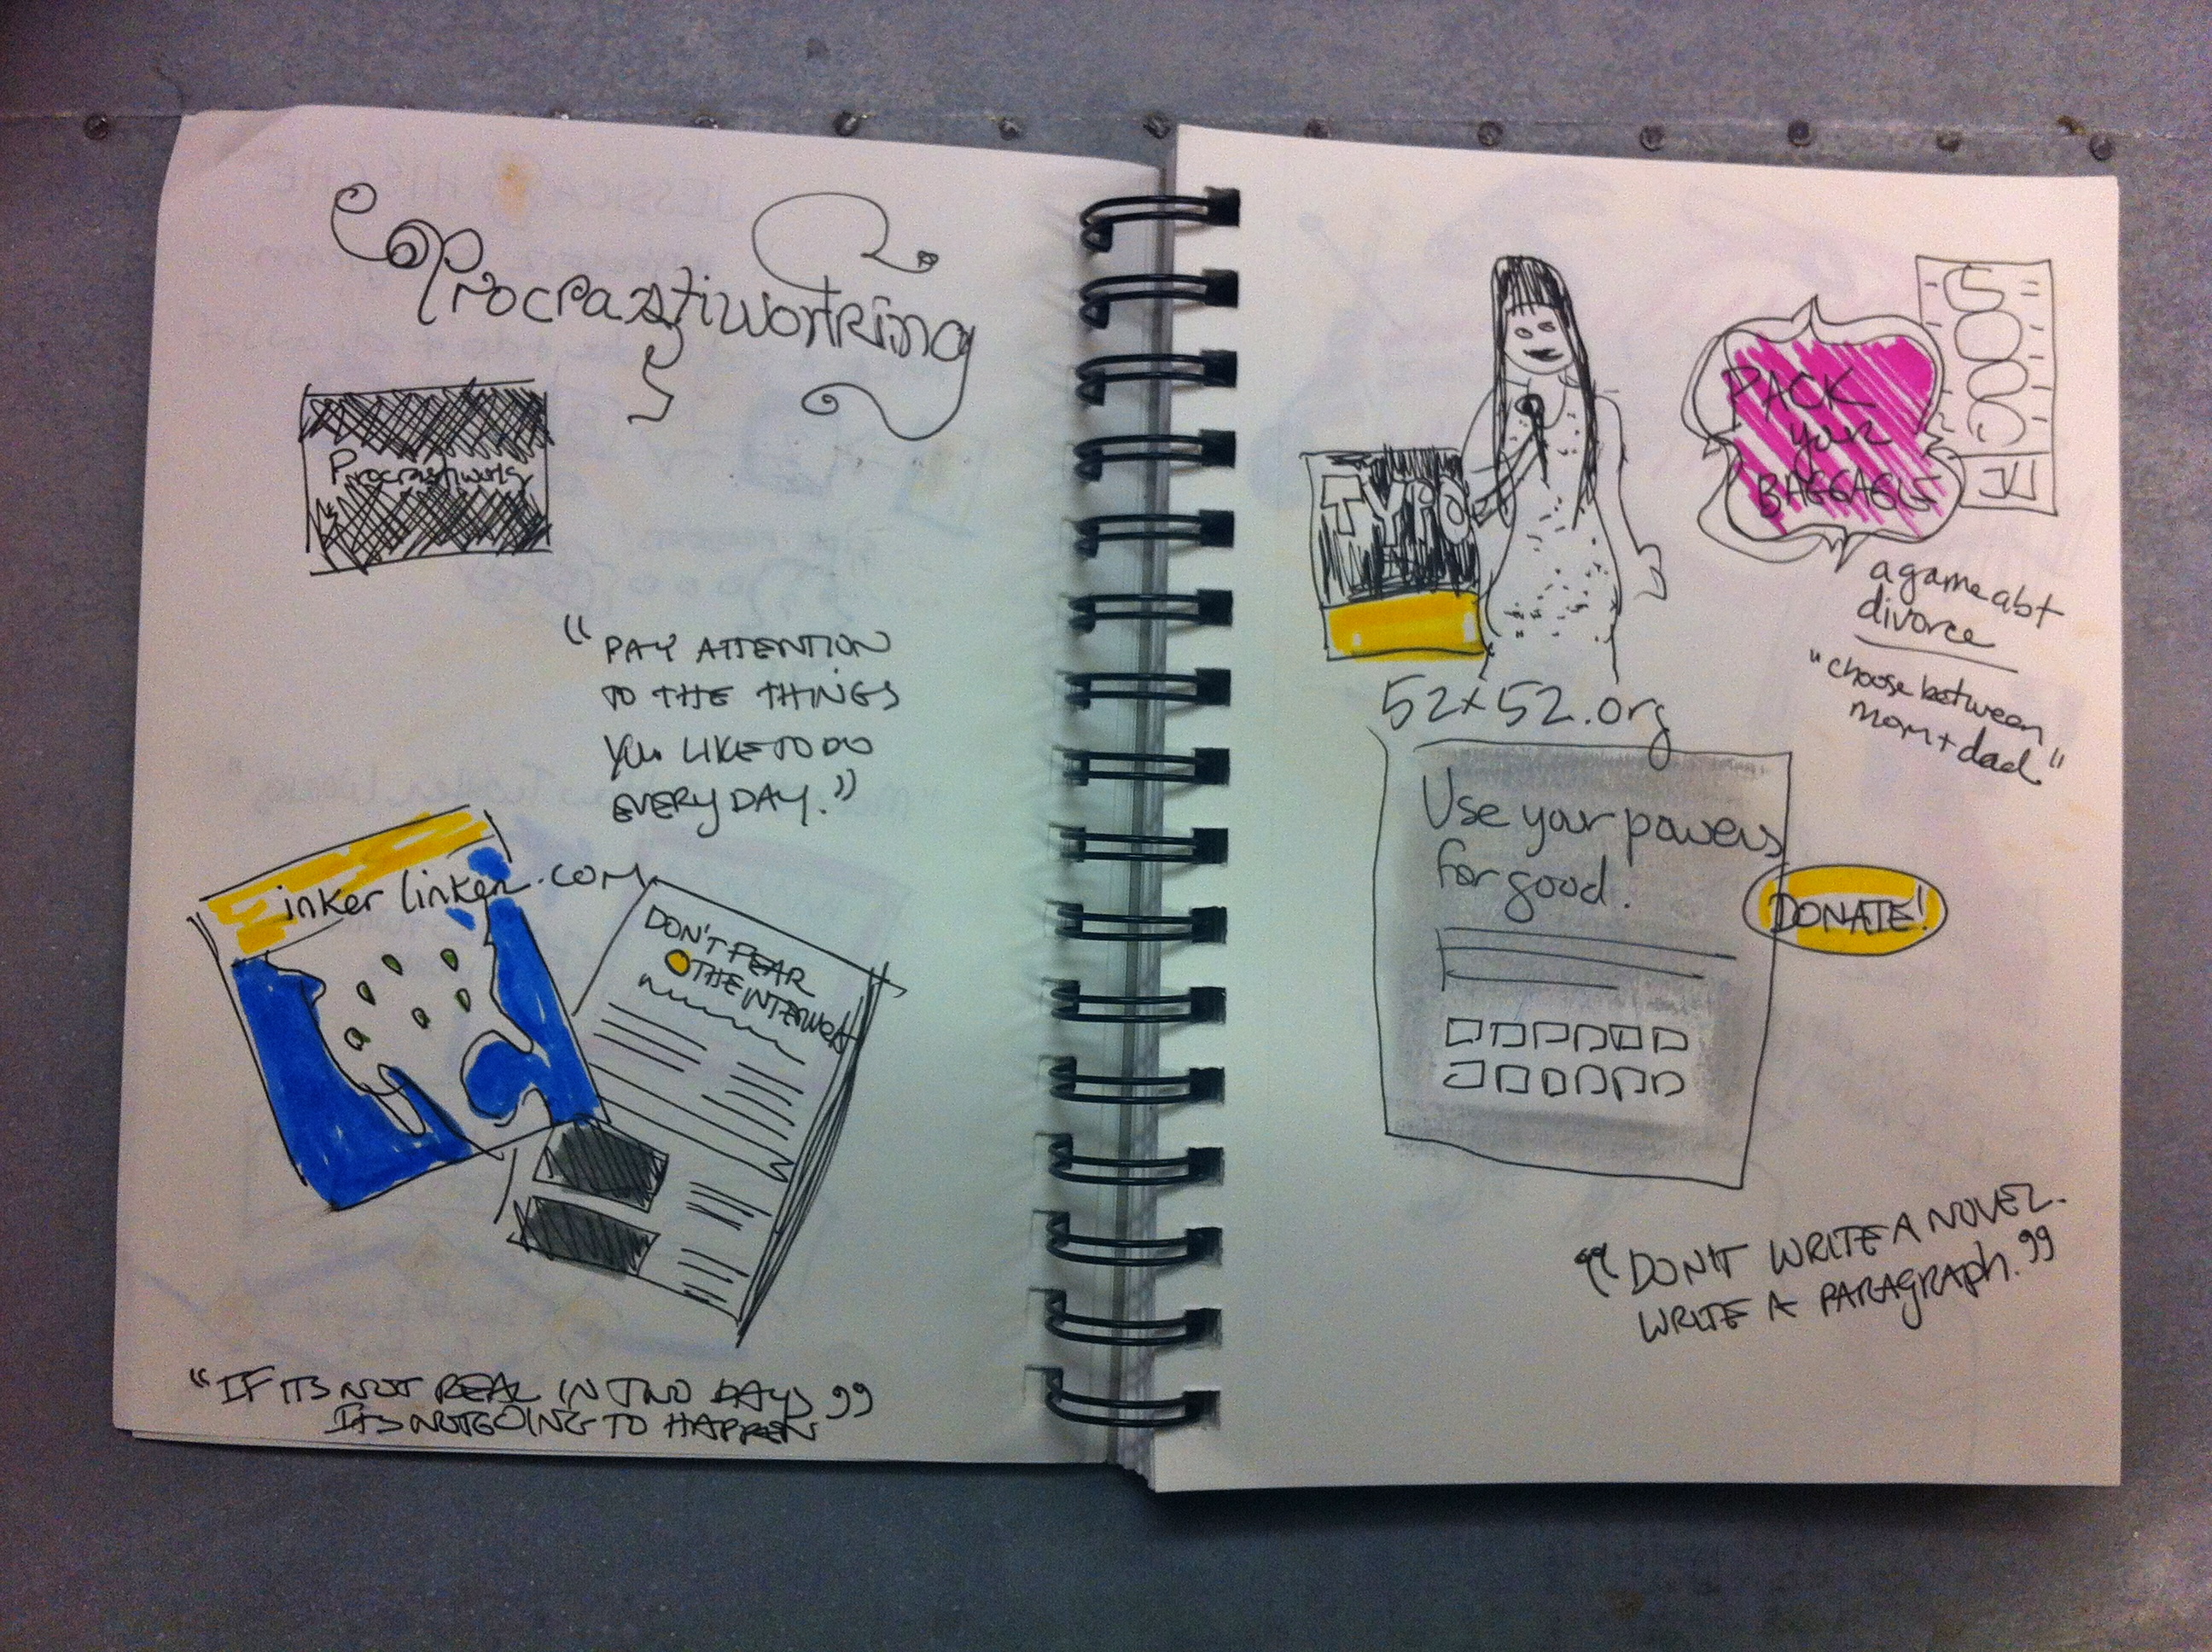 Procrastiworking
Procrastiworking
“PAY ATTENTION
TO THE THINGS
YOU LIKE TO DO
EVERY DAY.”
inker linker.com
DON'T FEAR
THE INTERWEB
“IF ITS NOT REAL IN TWO DAYS
ITS NOT GOING TO HAPPEN”
TYPO
PACK
your
BAGGAGE
a game abt
divorce
"choose between
mom + dad"
52x52.org
Use your powers
for good.
DONATE!
“DON'T WRITE A NOVEL.
WRITE A PARAGRAPH.”